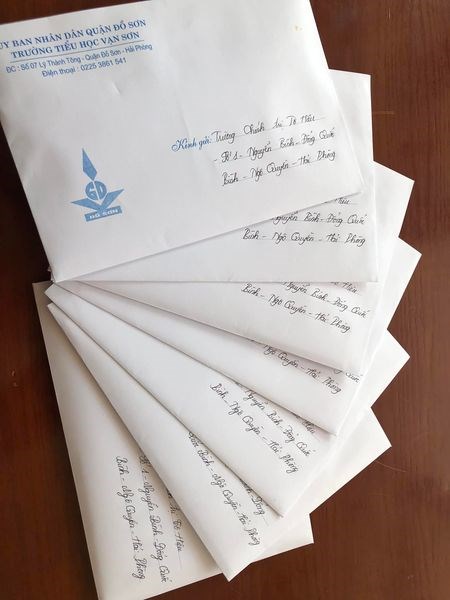 UỶ BAN NHÂN DÂN QUẬN ĐỒ SƠN
TRƯỜNG TIỂU HỌC VẠN SƠN
ĐC : Số 07 Lý Thánh Tông - Quận Đồ Sơn - Hải Phòng
Điện thoại : 0225 3861 541
Kính gửi: Trường Chính trị Tô Hiệu
- Số 1 - Nguyễn Bình - Đổng Quốc
Bình - Ngô Quyền - Hải Phòng
ĐỒ SƠN
Hiệu
Nguyễn Bình - Đổng Quốc
Bình - Ngô Quyền - Hải Phòng
Nguyễn Bình - Đổng Quốc
Bình - Ngô Quyền - Hải Phòng
Quốc
Bình - Ngô Quyền - Hải Phòng
Nguyễn Bình - Đổng Quốc
Bình - Ngô Quyền - Hải Phòng
Bình - Đổng
Bình - Ngô Quyền - Hải Phòng
Tô Hiệu
Số 1 - Nguyễn Bình - Đổng Quốc
Bình - Ngô Quyền - Hải Phòng